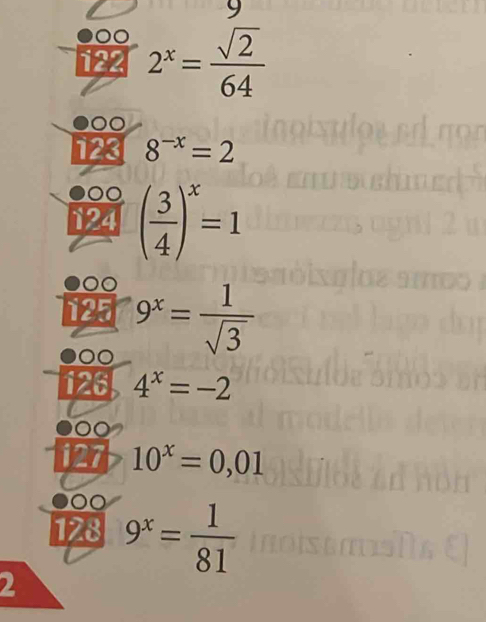 9
122 2^x = √2/64
123 8^{-x} = 2
124 (3/4)^x = 1
125 9^x = 1/√3
126 4^x = -2
127 10^x = 0,01
128 9^x = 1/81
2